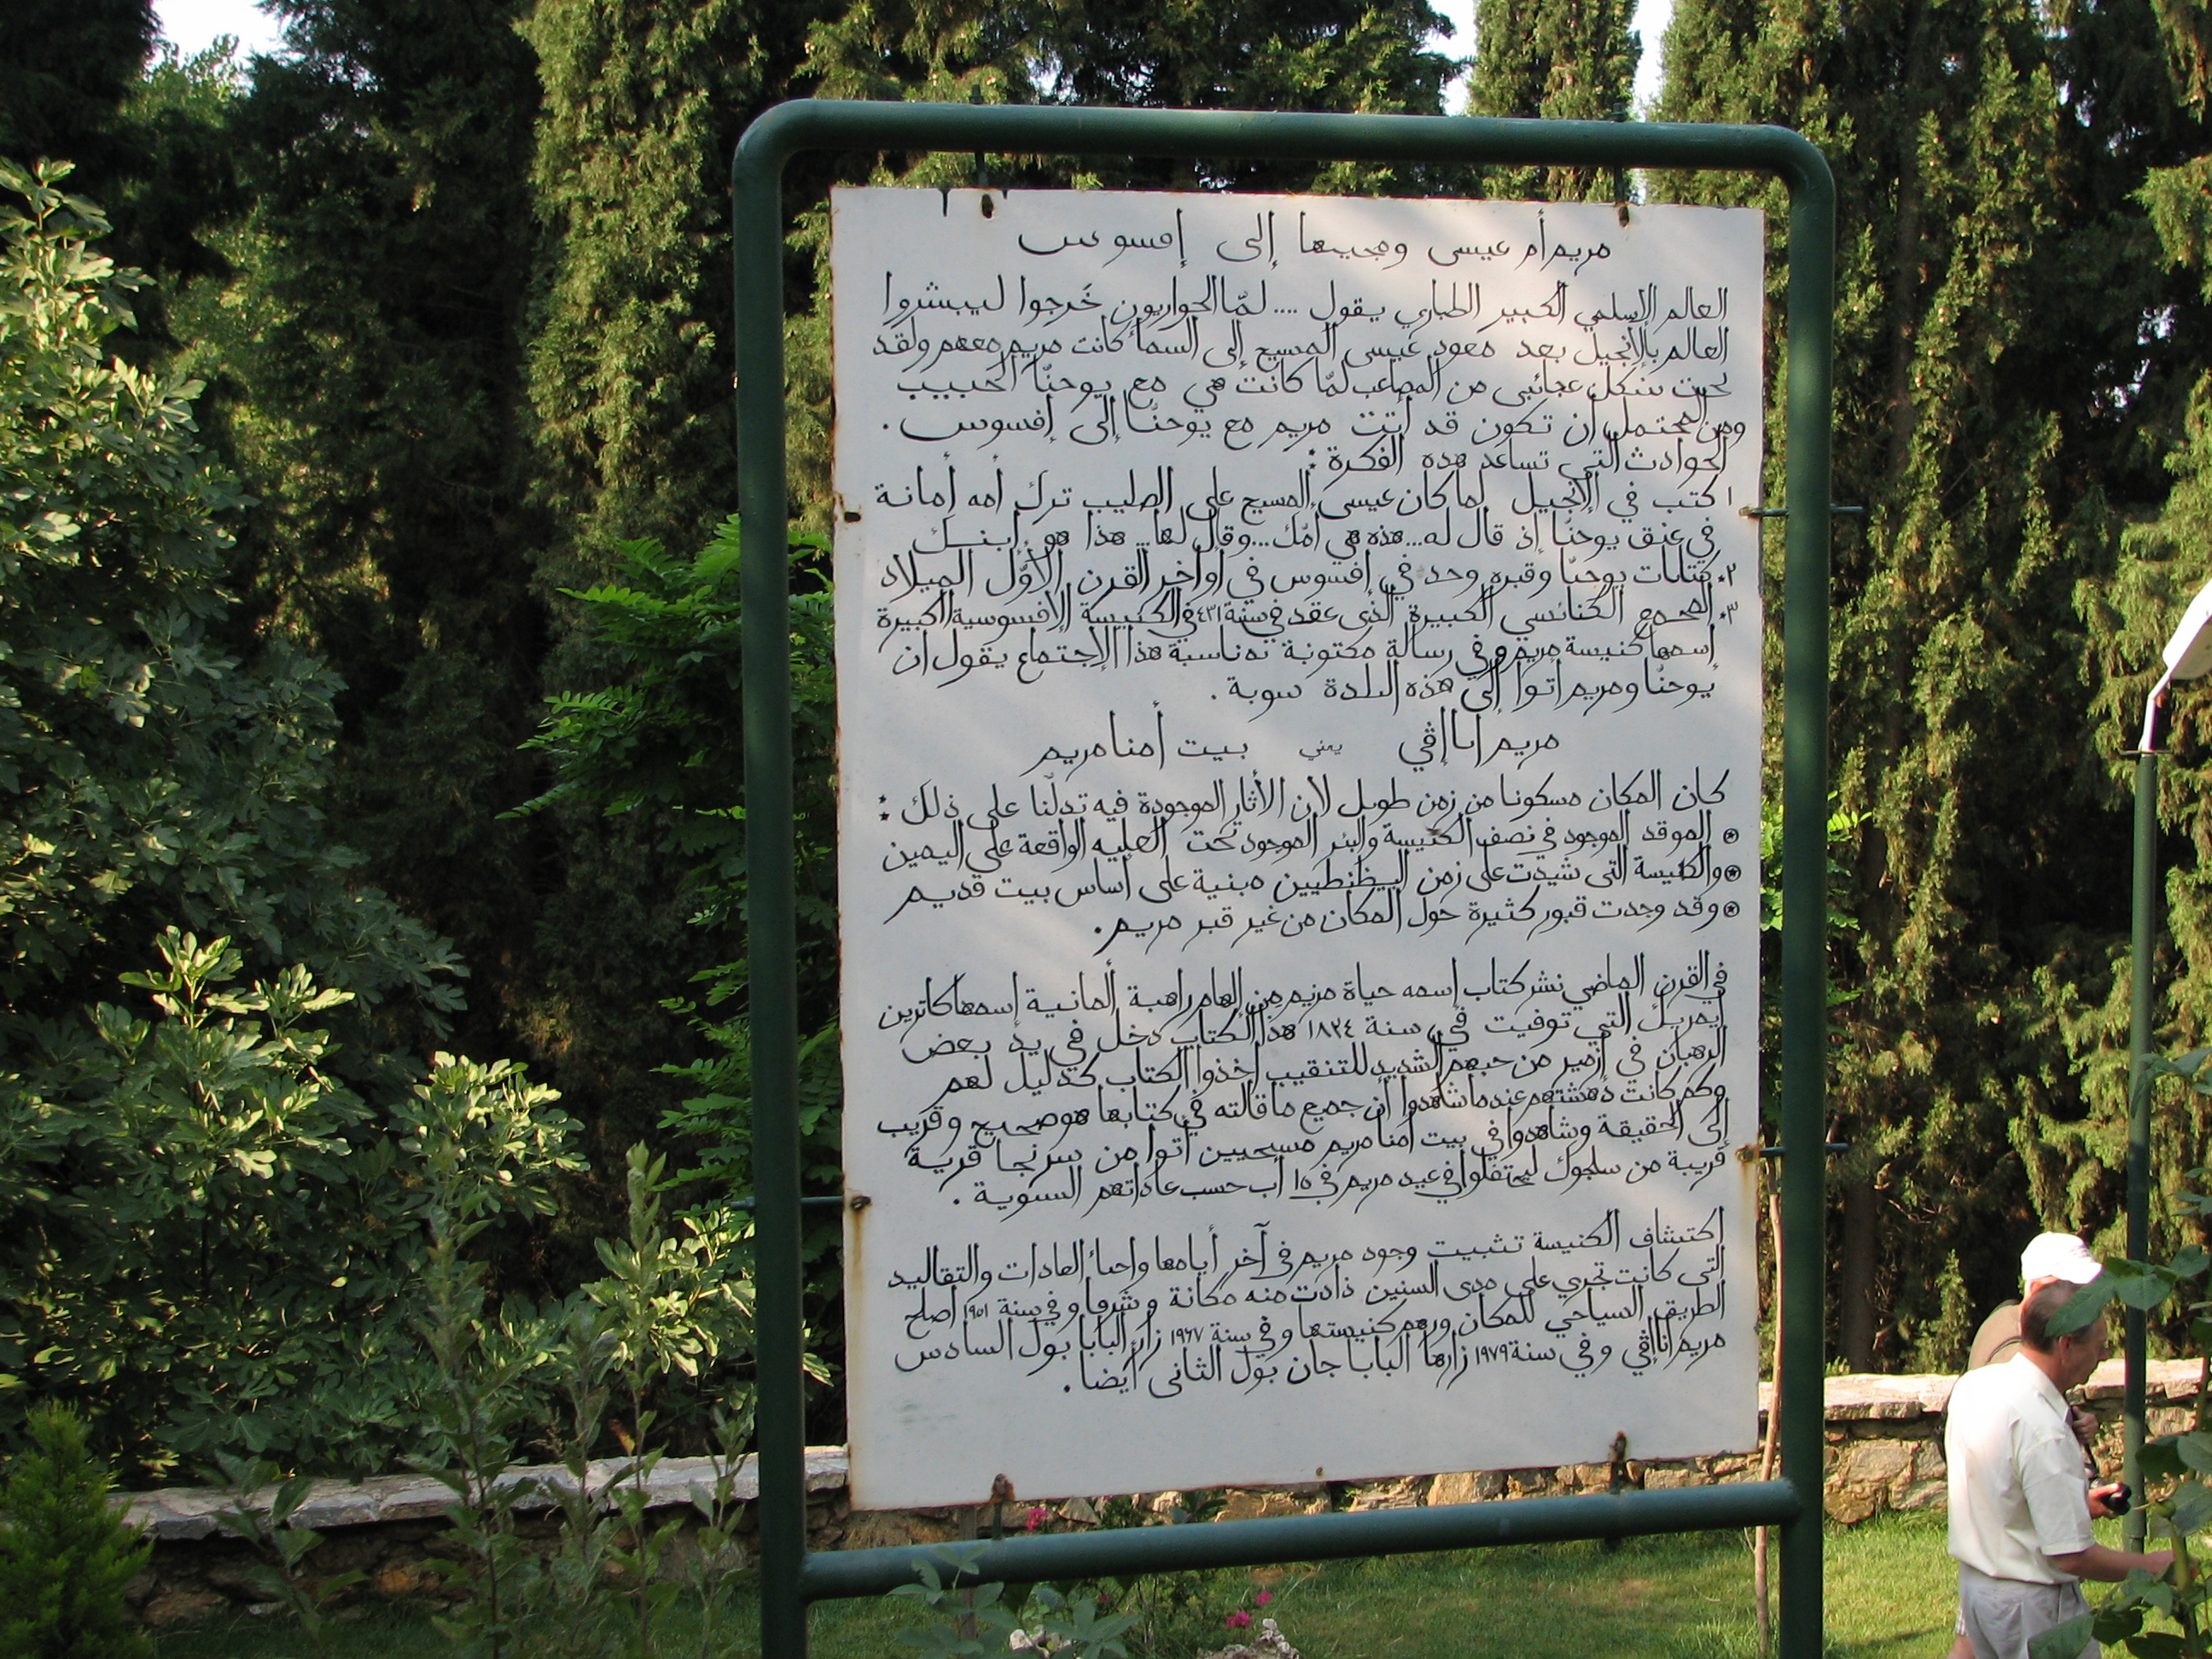 مريم أم عيسى ومجيىها إلى إفسوس
العالم الإسلمي الكبير الطباري يقول .... لمّا الحواريون خَرجوا ليبشروا
العالم بالإنجيل بعد معود عيسى المسيح إلى السماء كانت مريم معهم ولقد
نجيت بشكل عجائبي من المصاعب لمّا كانت هي مع يوحنّا الحبيب
ومن المحتمل أن تكون قد أتت مريم مع يوحنّا إلى إفسوس .
الحوادث التي تساعد هده الفكرة :
١ كتب في الإنجيل لما كان عيسى المسيح على الصليب ترك أمه أمانة
في عنق يوحنّا إذ قال له ... هذه هي أمّك ... وقال لها .. هذا هو أبنك
٢. كتابات يوحنّا وقبره وجد في إفسوس في أواخر القرن الأوّل الميلاد
٣. المجمع الكنائسي الكبيرة الذى عقد في سنة ٤٣١ في الكنيسة الإفسوسية الكبيرة
إسمها كنيسة مريم و في رسالة مكتوبة بمناسبة هذا الإجتماع يقول ان
يوحنّا ومريم اتوا إلى هذه البلدة سوية .
مريم انا إڤي يعني بيت أمنا مريم
كان المكان مسكونا من زمن طويل لان الأثار الموجودة فيه تدلّنا على ذلك :
الموقد الموجود في نصف الكنيسة والبئر الموجود تحت العليه الواقعة على اليمين
والكنيسة التى شيّدت على زمن البيظنطيين مبنية على أساس بيت قديم
وقد وجدت قبور كثيرة حول المكان من غير قبر مريم .
في القرن الماضي نشر كتاب إسمه حياة مريم من إلهام راهبة ألمانية إسمها كاترين
أيمريك التي توفيت في سنة ١٨٢٤ هذا الكتاب دخل في يد بعض
الرهبان في أزمير من حبهم الشديد للتنقيب أخذوا الكتاب كدليل لهم
وكم كانت دهشتهم عندما شاهدوا أن جميع ما قالته في كتابها هو صحيح وقريب
إلى الحقيقة وشاهدوا في بيت أمنا مريم مسيحيين أتوا من سرنجا قرية
قريبة من سلجوك ليحتفلوا في عيد مريم في ١٥ أب حسب عاداتهم السنوية .
إكتشاف الكنيسة تثبيت وجود مريم في آخر أيامها واحيأ العادات والتقاليد
التى كانت تجري على مدى السنين ذادت منه مكانة و شرفا و في سنة ١٩٥١ اصلح
الطريق السياحي للمكان ورمم كنيستها و في سنة ١٩٦٧ زار البابا بول السادس
مريم انا إڤي و في سنة ١٩٧٩ زارها البابا جان بول الثانى أيضا .